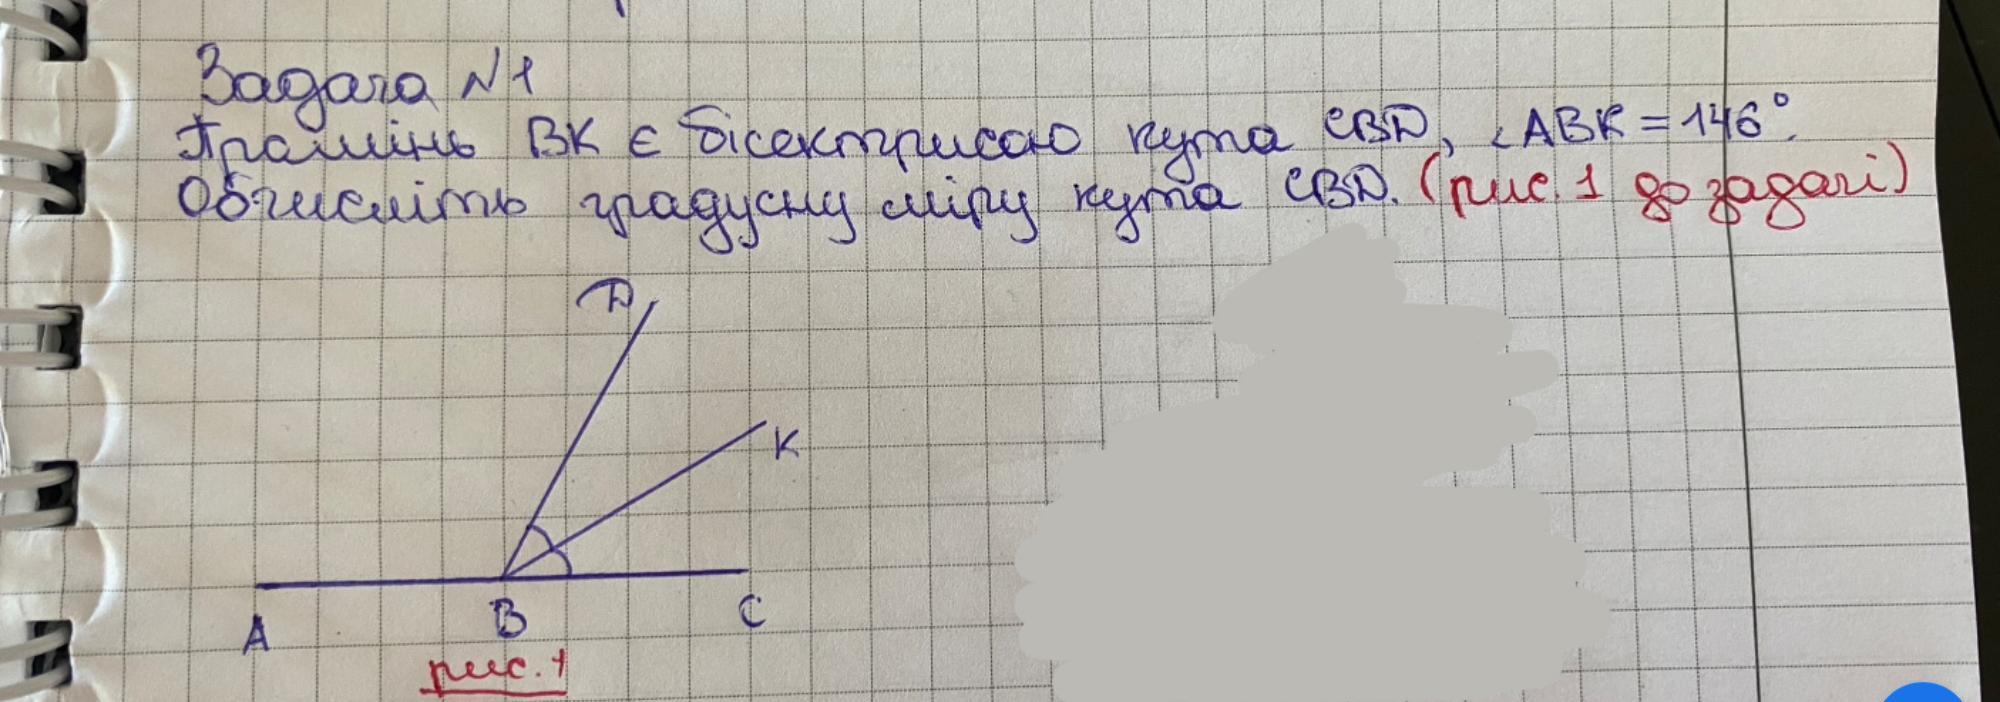 Задача №1
Промінь BK є бісектрисою кута CBD, ∠ABK = 146°.
Обчисліть градусну міру кута CBD. (рис. 1 до задачі)
D
K
A B C
рис. 1